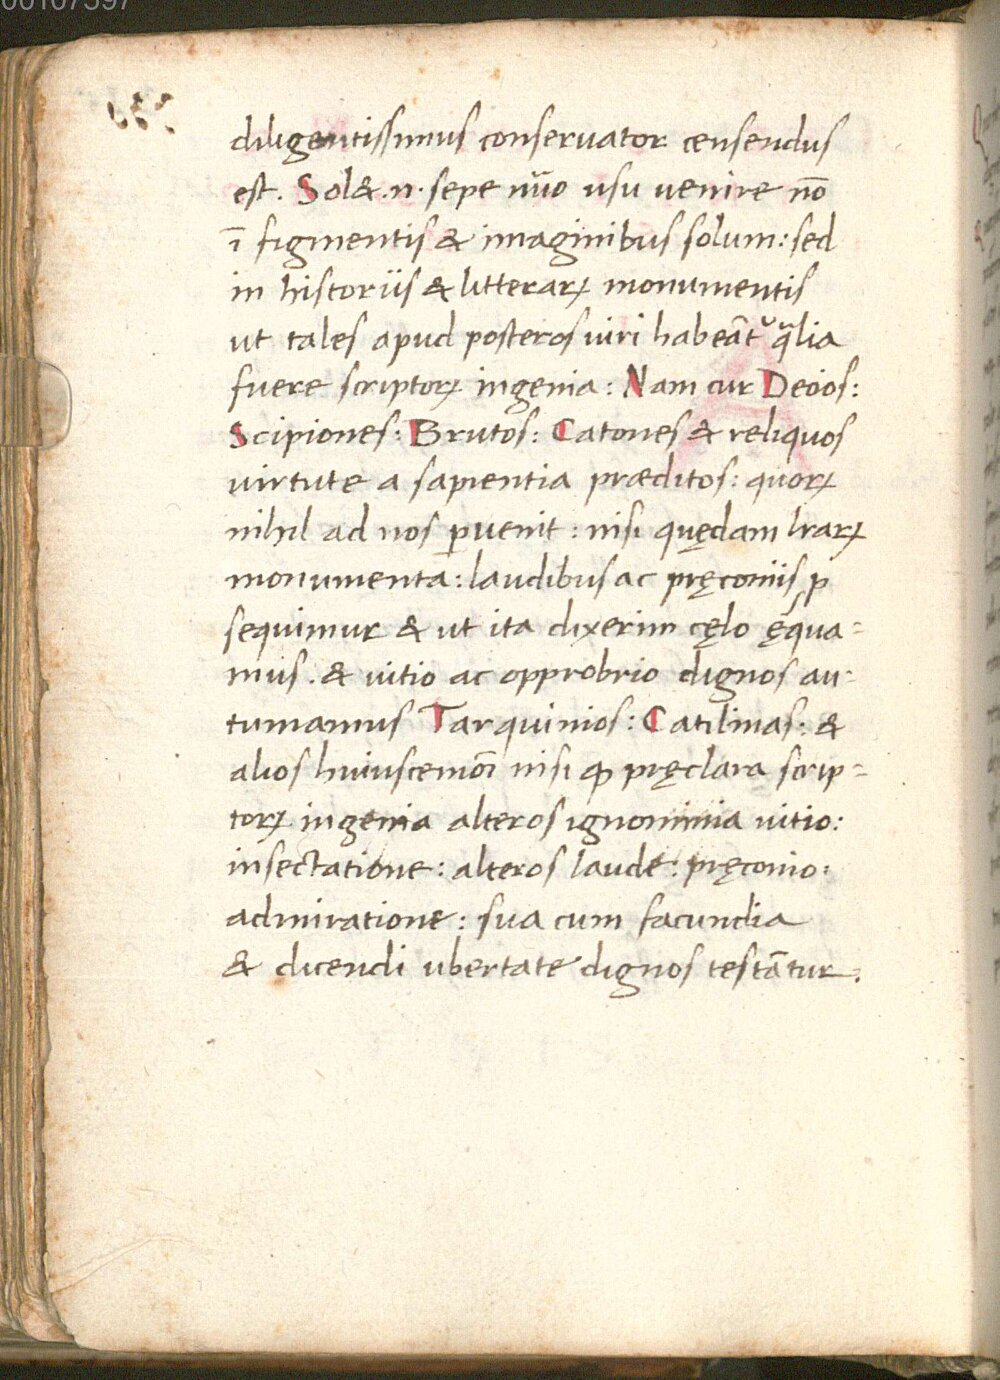 00167597
diligentissimus conseruator censendus
est. Sol&.n. sepe nūo usu uenire nō
ī figmentis & imaginibus solum: sed
in historiis & litterarꝝ monumentis
ut tales apud posteros uiri habeāt q̄lia
fuere scriptorꝝ ingenia: Nam cur Decios:
Scipiones: Brutos: Catones & reliquos
virtute a sapientia præditos: quorꝝ
nihil ad nos ꝑuenit: nisi quędam lrarꝝ
monumenta: laudibus ac pręconiis ꝑ
sequimur & ut ita dixerim cęlo ęqua=
mus. & uitio ac opprobrio dignos au=
tumamus Tarquinios: Catilinas: &
alios huiuscemōi nisi qp pręclara scrip=
torꝝ ingenia alteros ignominia uitio:
insectatione: alteros laude: pręconio:
admiratione: sua cum facundia
& dicendi ubertate dignos testātur.